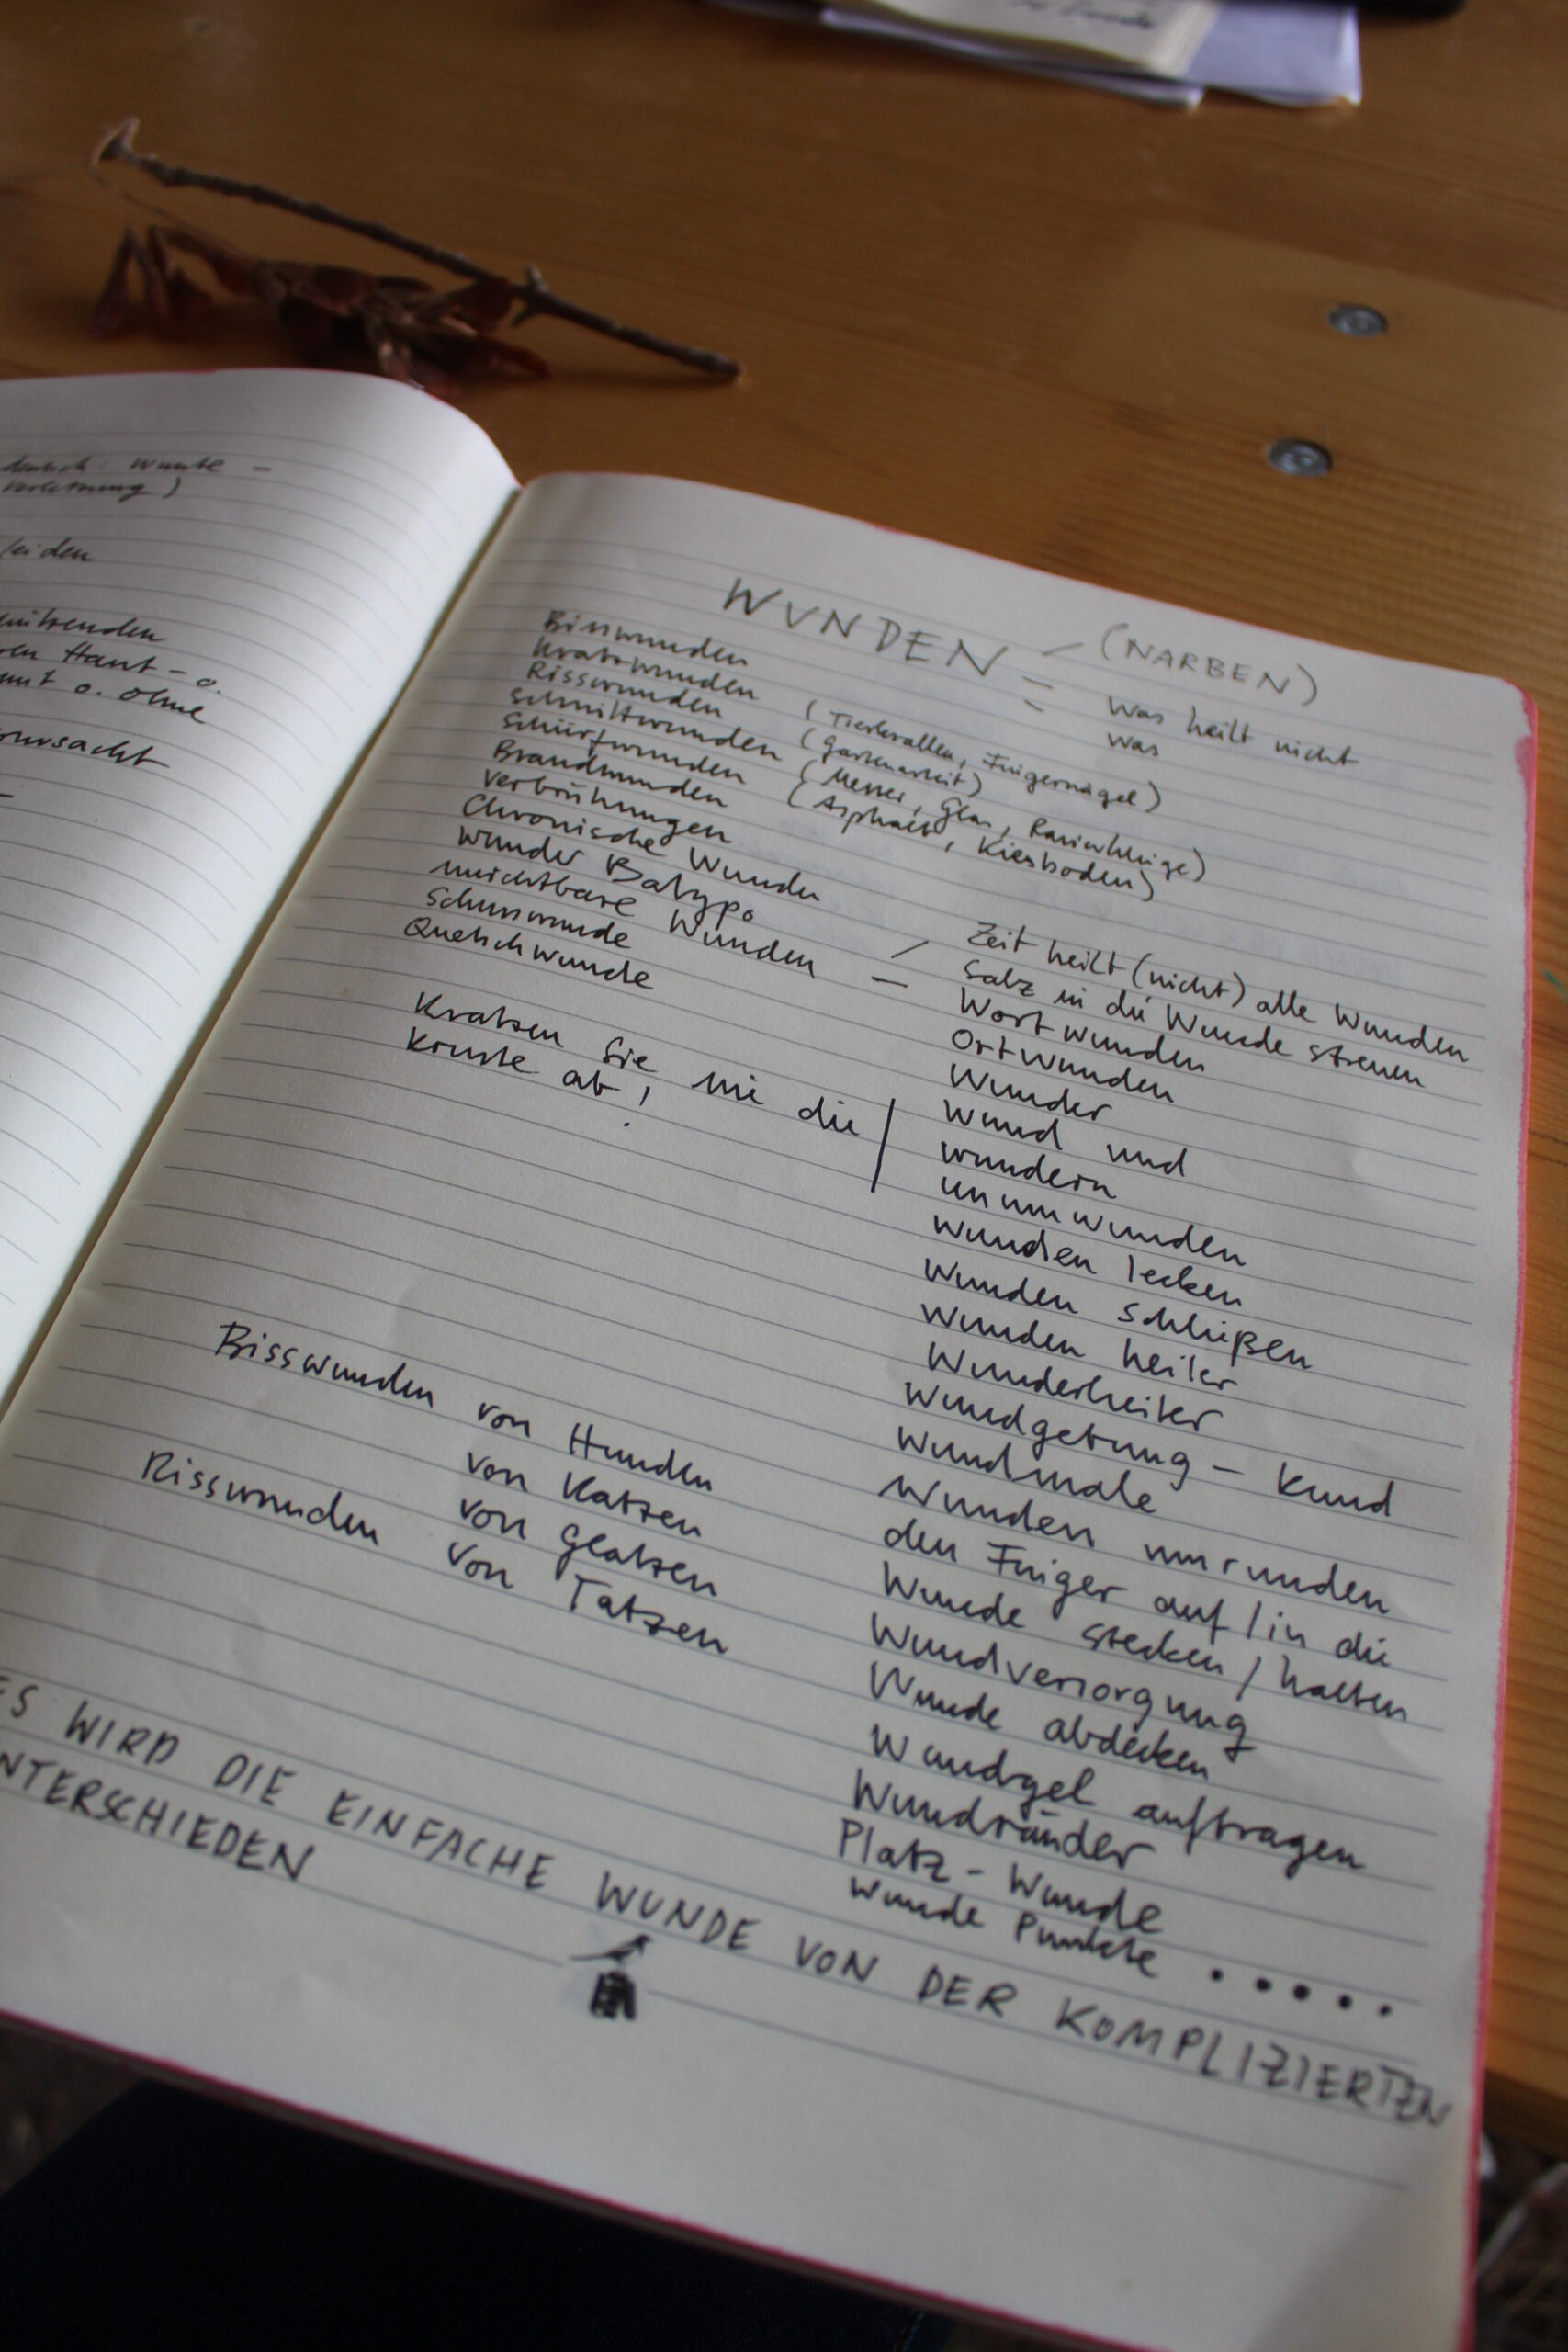 deutsch: Wunte –
Verletzung)
leiden
Haut – o.
o. ohne
WUNDEN – (NARBEN)
= Was heilt nicht
was
Bisswunden
Kratzwunden (Tierkrallen, Fingernägel)
Risswunden (Gartenarbeit)
Schnittwunden (Messer, Glas, Rasierklinge)
Schürfwunden (Asphalt, Kiesboden)
Brandwunden
Verbrühungen
Chronische Wunden
wunder Babypo
unsichtbare Wunden
Schusswunde
Quetschwunde
Kratzen Sie nie die
Kruste ab!
Bisswunden von Hunden
von Katzen
von Glatzen
Risswunden von Tatzen
Zeit heilt (nicht) alle Wunden
Salz in die Wunde streuen
Wortwunden
Ortwunden
Wunder
Wund und
wundern
unumwunden
Wunden lecken
Wunden schließen
Wunden heiler
Wunderheiler
Wundgebung – Kund
Wundmale
Wunden umrunden
den Finger auf / in die
Wunde stecken / halten
Wundversorgung
Wunde abdecken
Wundgel auftragen
Wundränder
Platz – Wunde
Wunde Punkte • • • • •
ES WIRD DIE EINFACHE WUNDE VON DER KOMPLIZIERTEN
NTERSCHIEDEN